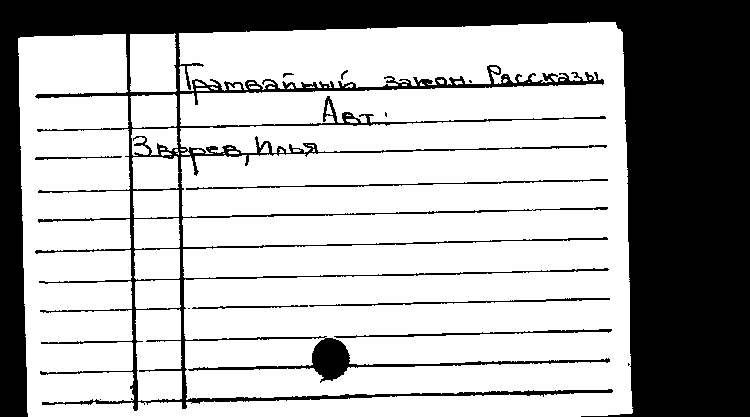 Трамвайный закон. Рассказы
Авт.:
Зверев, Илья